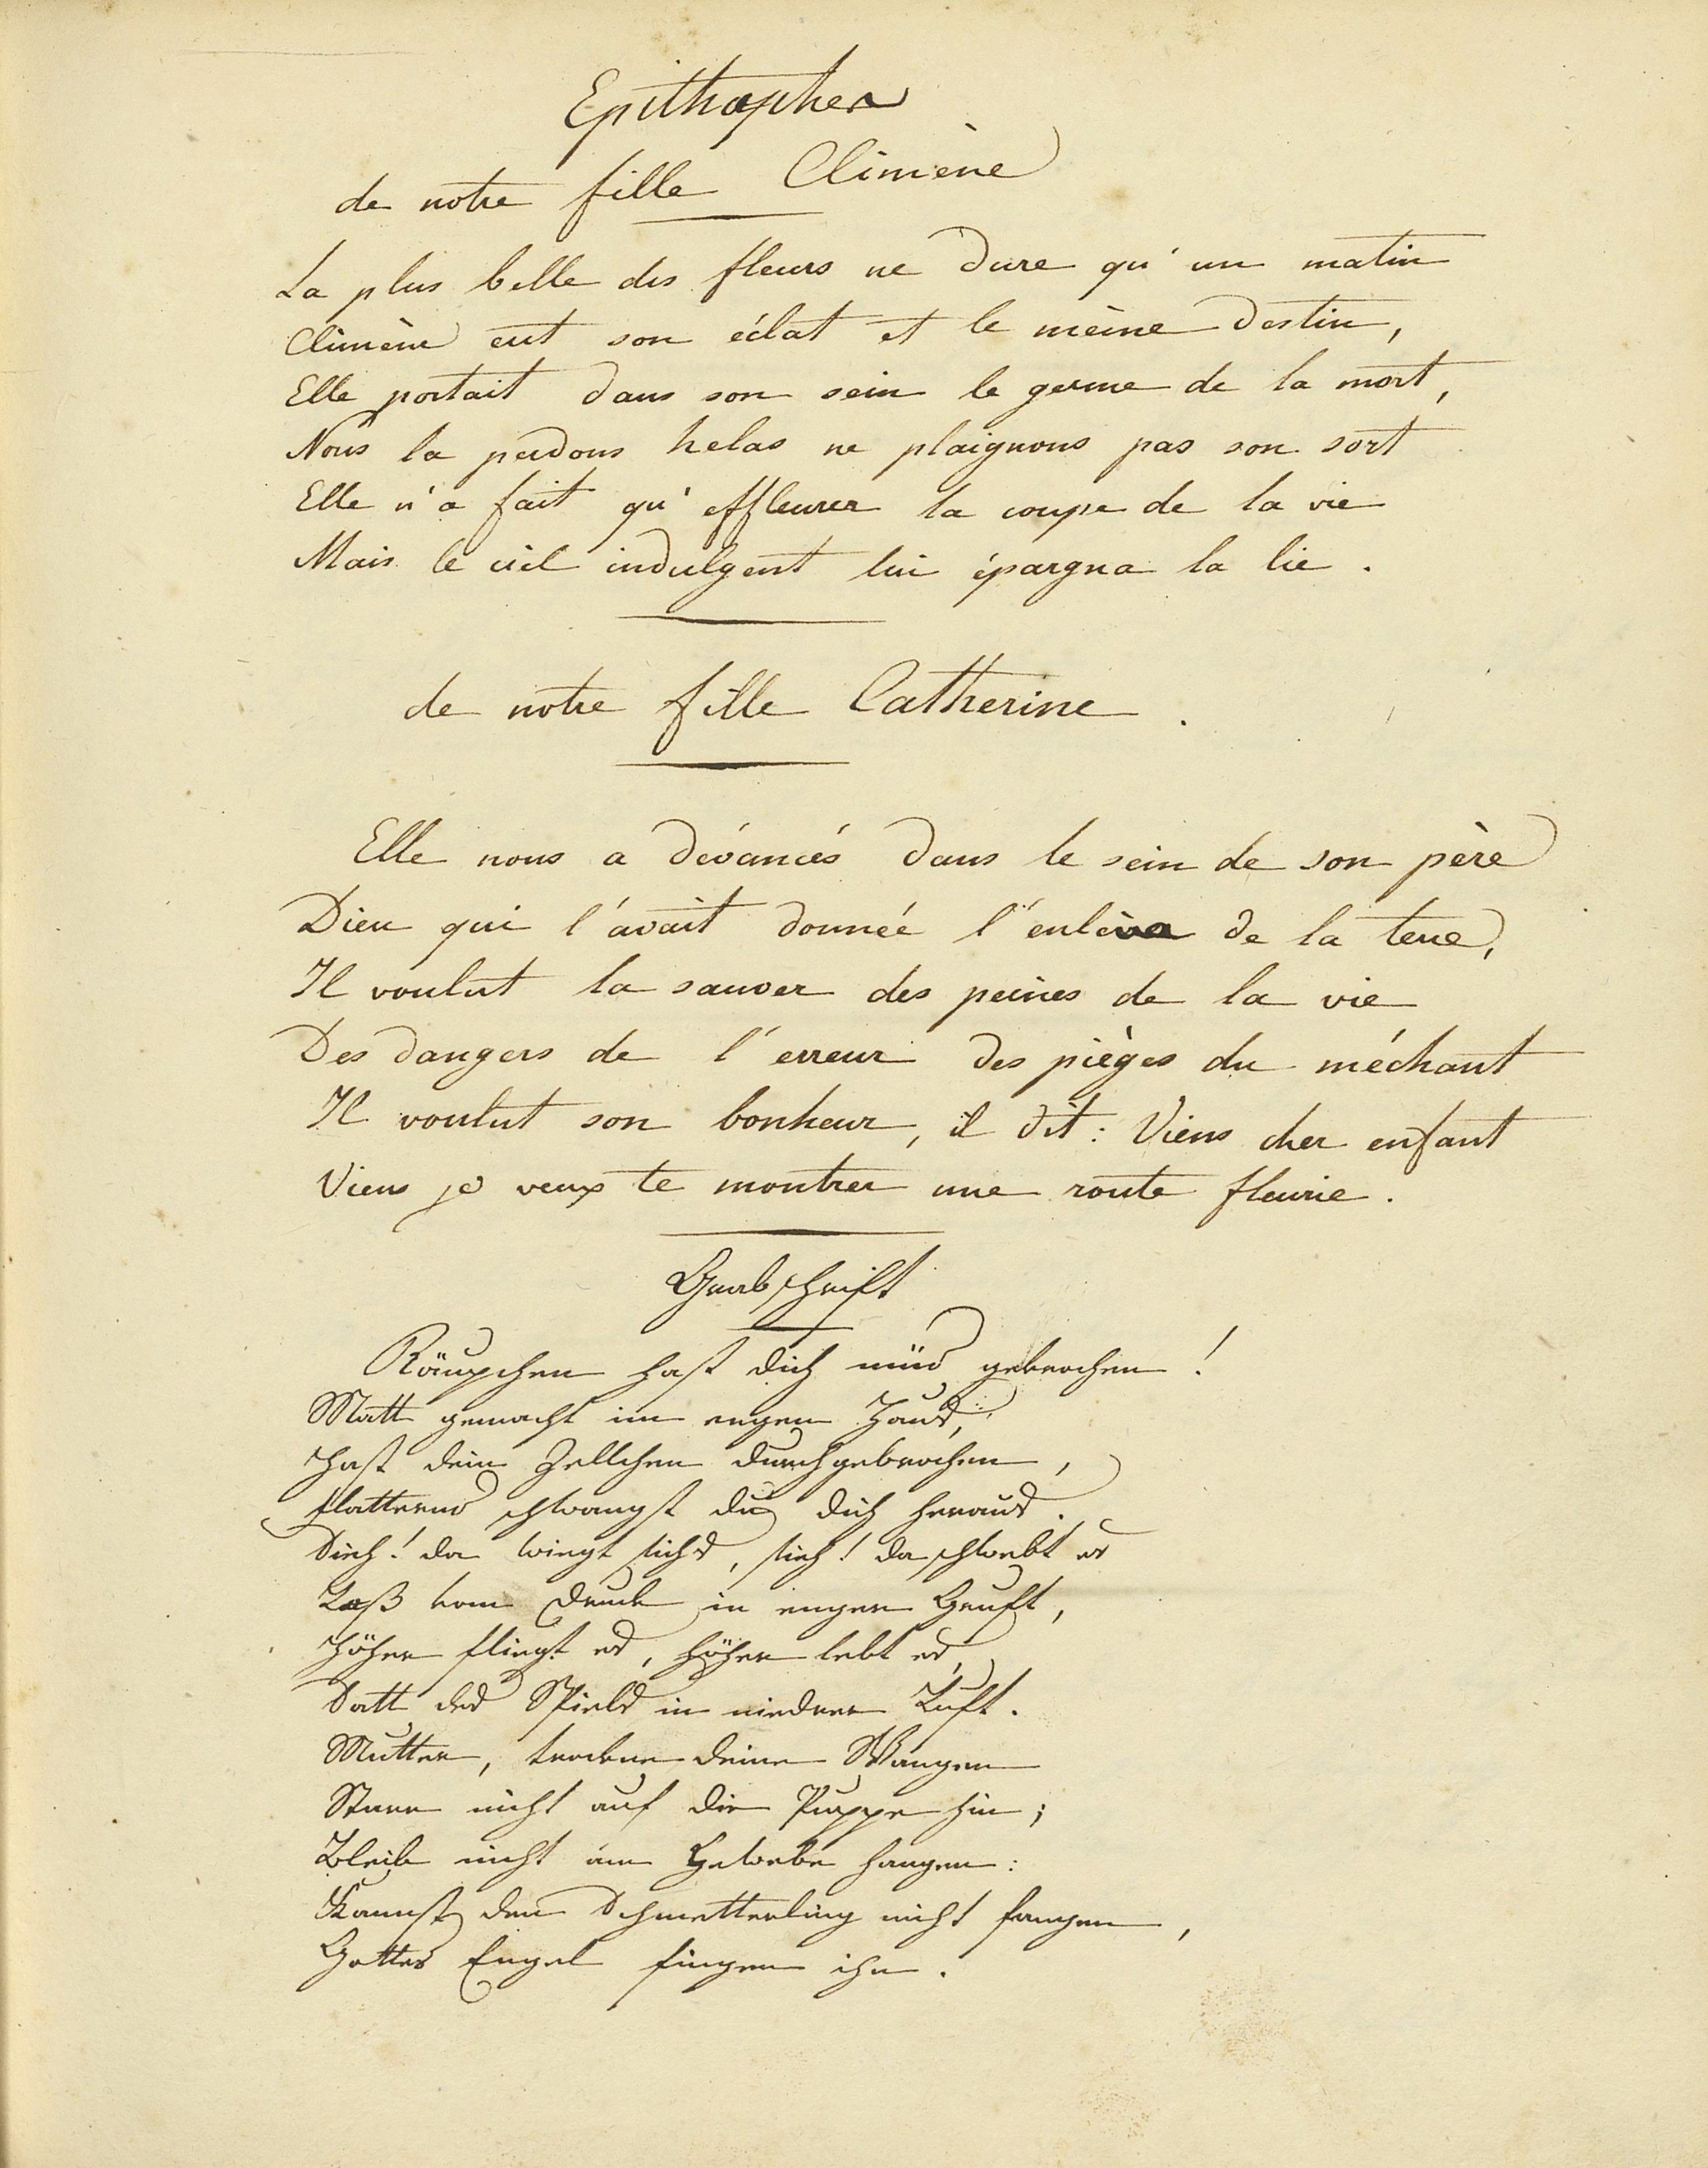 Epithaphes
de notre fille Climène
La plus belle des fleurs ne dure qu'un matin
Climène eut son éclat et le même destin,
Elle portait dans son sein le germe de la mort,
Nous la perdons helas ne plaignons pas son sort
Elle n'a fait qu'effleurer la coupe de la vie
Mais le ciel indulgent lui épargna la lie.
de notre fille Catherine.
Elle nous a dévancés dans le sein de son père
Dieu qui l'avait donnée l'enlèva de la terre,
Il voulut la sauver des peines de la vie
Des dangers de l'erreur des pièges du méchant
Il voulut son bonheur, il dit: Viens cher enfant
Viens je veux te montrer une route fleurie.
Grabschrift
Räupchen hast dich müd gekrochen!
Matt gemacht im engen Haus,
Hast dein Zellchen durchgebrochen,
flatternd schwangst du dich heraus.
Sieh! da wiegt sichs, sieh! da schwebt es
Loß vom Druck in enger Gruft,
Höher fliegt es, höher lebt es,
Satt des Spiels in niedrer Luft.
Mutter, trockne deine Wangen
Starr nicht auf die Puppe hin;
Bleib nicht am Gewebe hangen:
Kannst den Schmetterling nicht fangen,
Gottes Engel fingen ihn.